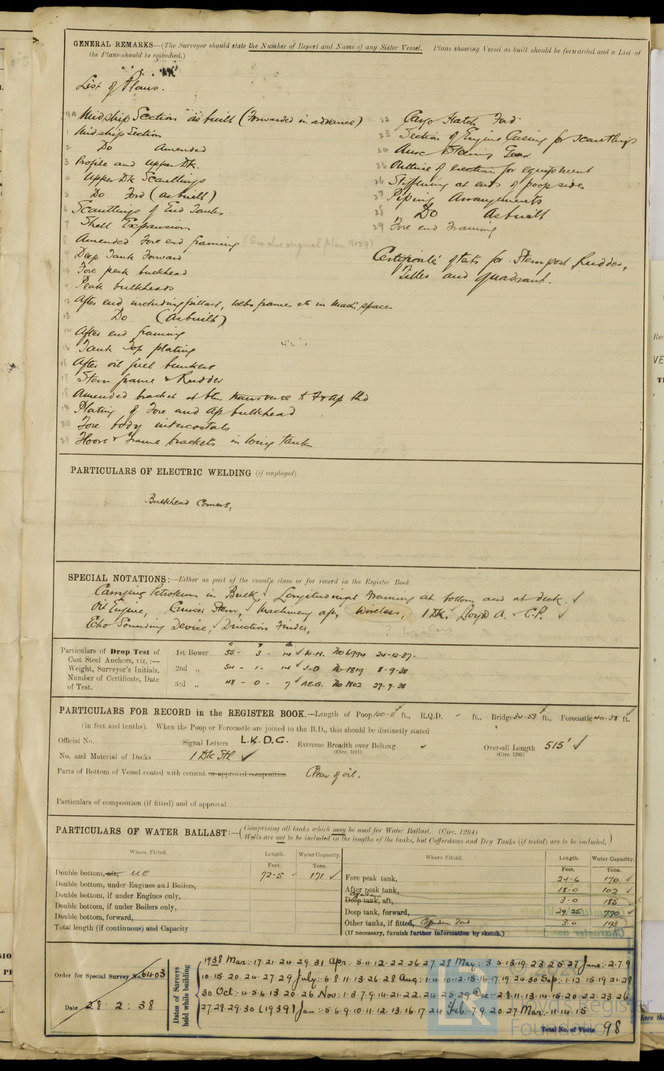 GENERAL REMARKS—(The Surveyor should state the Number of Report and Name of any Sister Vessel. Plans showing Vessel as built should be forwarded and a List of
the Plans should be embodied.)
List of Plans.
Midship Section as built (Forwarded in advance)
1 Midship Section
2 Do Amended
3 Profile and Upper Dk.
4 Upper Dk Scantlings
5 Do Fwd (as built)
6 Scantlings of End Tanks
7 Shell Expansion
8 Amended Fore end framing (See also original plan No 29)
9 Deep Tank Forward
10 Fore peak bulkhead
11 Peak bulkheads
12 After end including pillars, webs frame etc in Machy space
13 Do (as built)
14 After end framing
15 Tank Top plating
16 After oil fuel bunkers
17 Stern frame & Rudder
18 Amended bracket at btm
19 Plating of Fore and Aft bulkhead
20 Fore body intercostals
21 Floors & Frame brackets in wing tank
22 Cargo Hatch Fwd
23 Section of Engine Casing for scantlings
24 Aux Steering Gear
25 Outline of erection for equipment
26 Stiffening at ends of poop sides
27 Piping Arrangements
28 Do As built
29 Fore end Framing
Certificate of tests for Stern post, Rudder,
Tiller and Quadrant.
PARTICULARS OF ELECTRIC WELDING (if employed)
Bulkhead Corners,
SPECIAL NOTATIONS:—Either as part of the vessel's class or for record in the Register Book
Carrying Petroleum in Bulk, Longitudinal Framing at bottom and at deck. ✓
Oil Engine, Cruiser Stern, Machinery aft, Wireless, 1 Dk. Lloyd's A. & C.P. ✓
Echo Sounding Device, Direction Finder,
Particulars of Drop Test of Cast Steel Anchors, viz.:— Weight, Surveyor's Initials, Number of Certificate, Date of Test.
1st Bower 55 - 3 - 14 ✓ K.H. No 6994 24-12-37.
2nd „ 54 - 1 - 14 ✓ J.D. No 1819 8-9-38
3rd „ 48 - 0 - 7 ✓ A.E.G. No 1802 27-9-38
PARTICULARS FOR RECORD in the REGISTER BOOK.—Length of Poop 100.5 ft., R.Q.D. - ft., Bridge 34.53 ft., Forecastle 40.38 ft.
(in feet and tenths). When the Poop or Forecastle are joined to the B.D., this should be distinctly stated
Official No. Signal Letters L.K.D.G. Extreme Breadth over Belting (Circ. 1611) Over-all Length 515' ✓ (Circ. 1703)
No. and Material of Decks 1 Dk Stl ✓
Parts of Bottom of Vessel coated with cement or approved composition Clear of oil.
Particulars of composition (if fitted) and of approval
PARTICULARS OF WATER BALLAST:—(Comprising all tanks which may be used for Water Ballast. (Circ. 1284)
Wells are not to be included in the lengths of the tanks, but Cofferdams and Dry Tanks (if fitted) are to be included.)
Where Fitted. Length. Water Capacity. Where Fitted. Length. Water Capacity.
Feet. Tons. Feet. Tons.
Double bottom, aft, U.E. 72.5 ✓ 171 ✓
Double bottom, under Engines and Boilers,
Double bottom, if under Engines only,
Double bottom, if under Boilers only,
Double bottom, forward,
Total length (if continuous) and Capacity
Fore peak tank, 24.6 170 ✓
After peak tank, 18.0 102 ✓
Deep tank, aft, Cofferdam 3.0 185
Deep tank, forward, 29.25 770 ✓
Other tanks, if fitted, Cofferdam Fwd 3.0 193
(If necessary, furnish further information by sketch.)
Order for Special Survey No. 6403
Date 28 . 2 . 38
Dates of Surveys held while building
1938 Mar: 17. 21. 24. 29. 31 Apr. 5. 11. 12. 22. 26. 27. 28 May: 3. 5. 13. 19. 23. 25. 27 June: 2. 7. 9
10. 15. 20. 24. 27. 29 July: 6. 8. 11. 13. 26. 28 Aug: 1. 4. 10. 12. 15. 16. 17. 19. 24. 30 Sep: 1. 12. 15. 19. 21. 28
30 Oct: 4. 5. 6. 13. 20. 26 Nov: 1. 3. 7. 9. 14. 21. 22. 24. 25. 29 Dec: 2. 8. 11. 13. 14. 15. 20. 22. 23. 26
27. 28. 29. 30 (1939) Jan: 5. 6. 9. 10. 11. 12. 13. 16. 17. 24 Feb: 7. 9. 20. 27 Mar: 11. 14. 15
Total No. of Visits 98